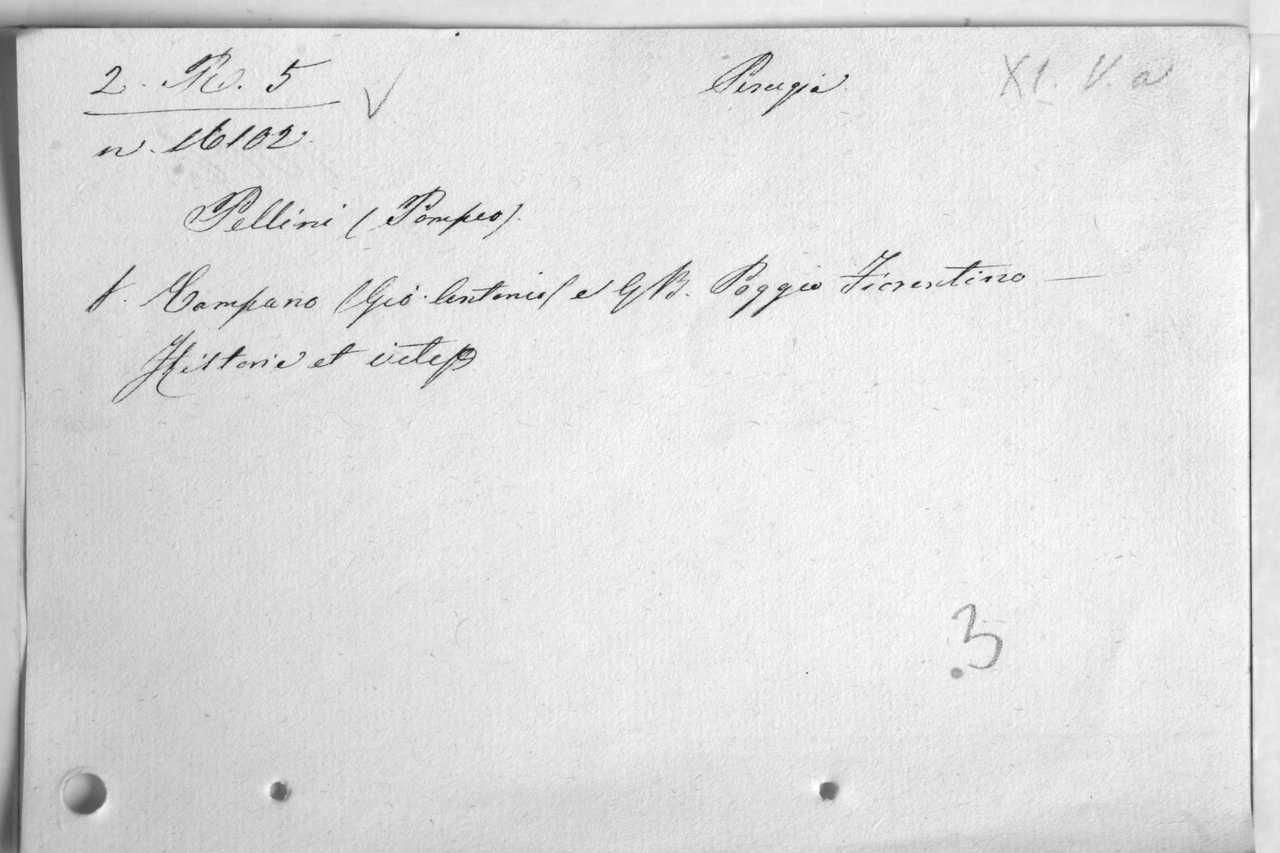 2. R. 5 Perugia XI. V. a
n. 16102
Pellini (Pompeo).
V. Campano (Gio. Antonio) e G B. Poggio Fiorentino —
Historie et vite
3